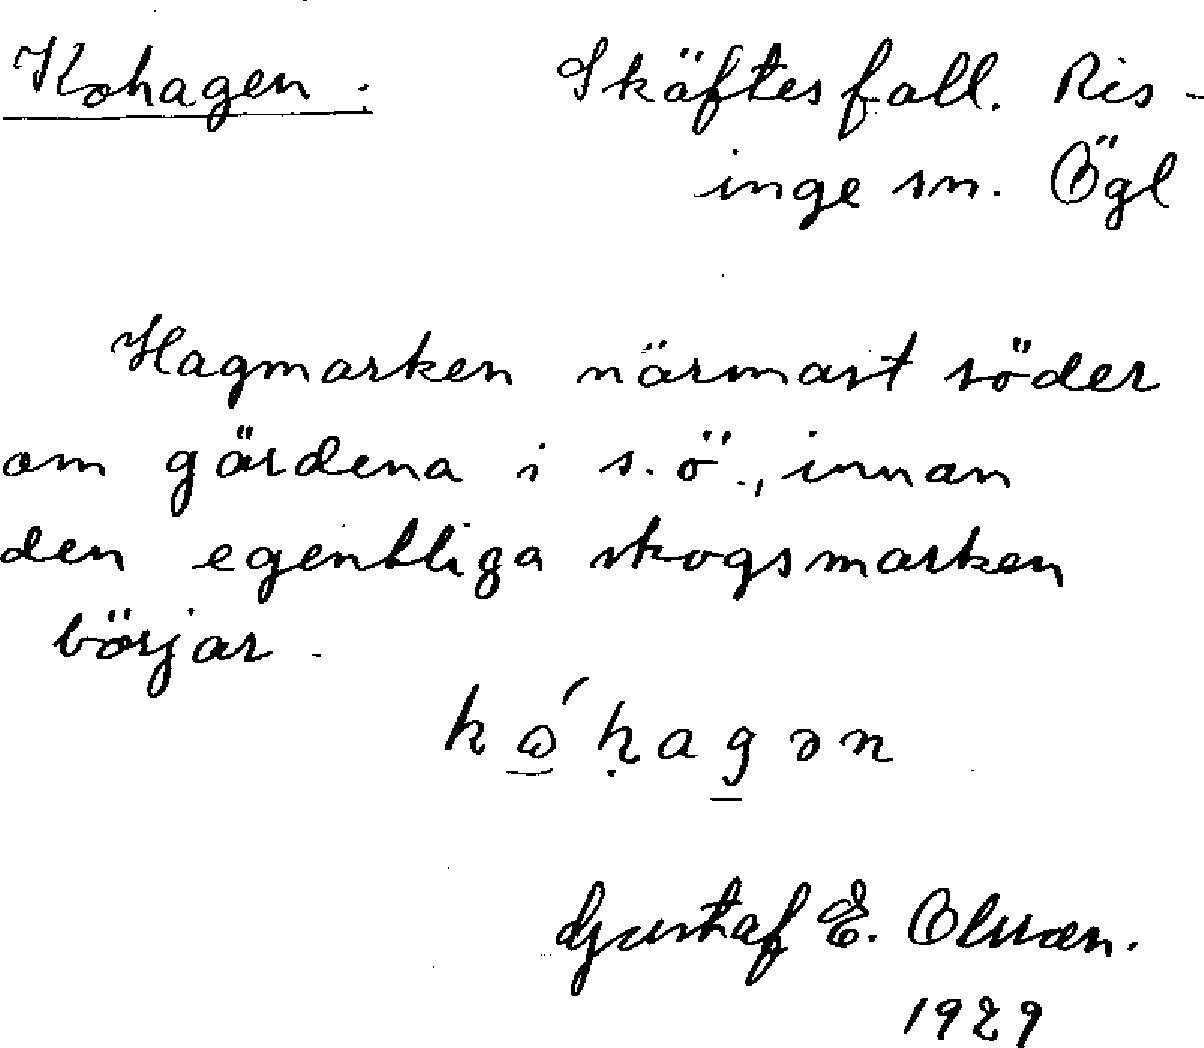 Kohagen. Skäftesfall. Ris-
inge sn. Ögl
Hagmarken närmast söder
om gärdena i s.ö., innan
den egentliga skogsmarken
börjar.
kǫ́ḥag̱ən
Gustaf E. Olsson.
1929